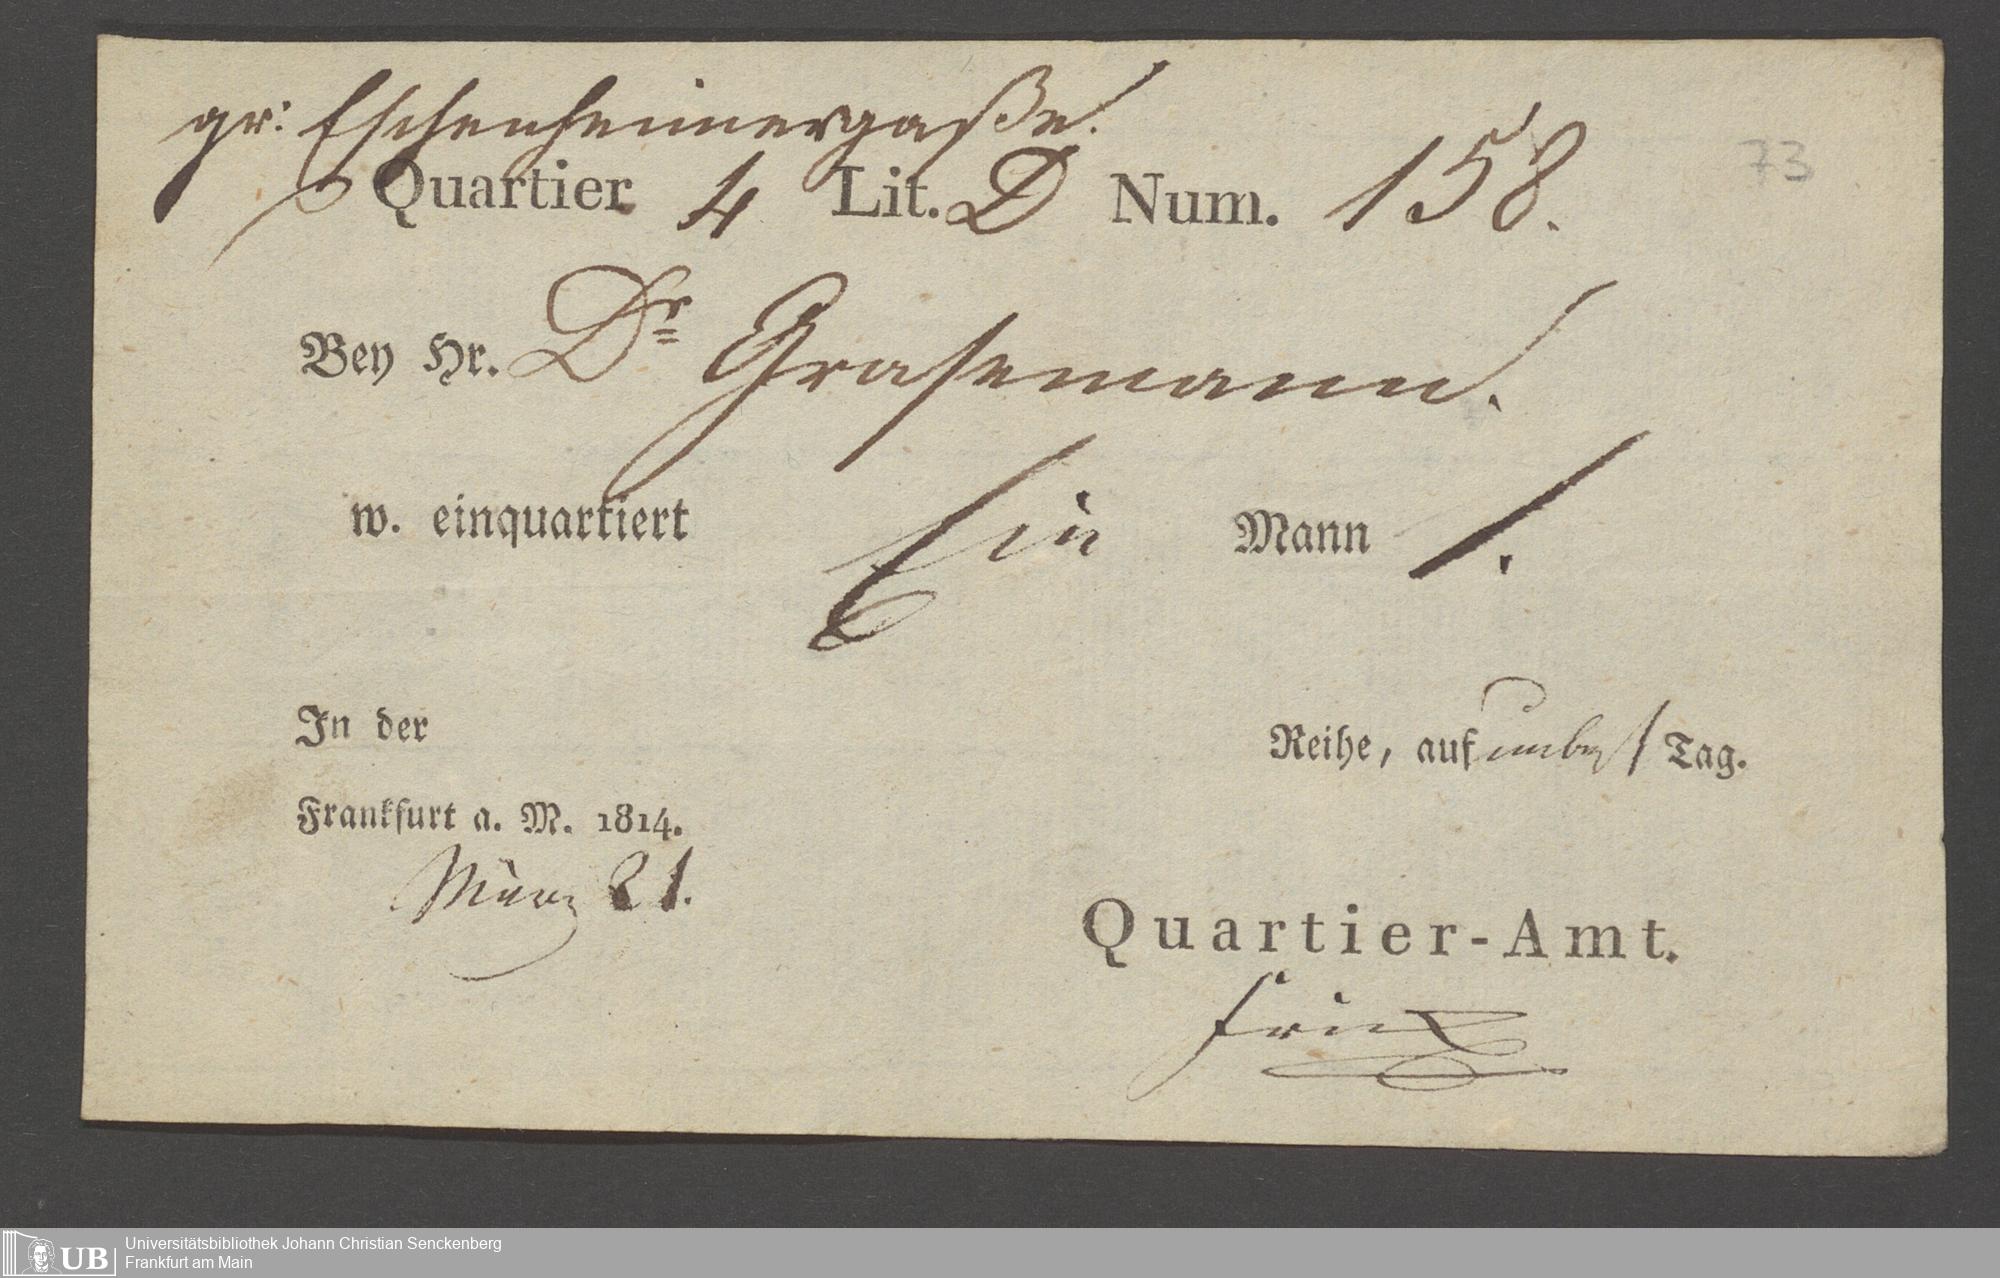 gr: Eschenheimergaße.
Quartier 4 Lit. D Num. 158.
73
Bey Hr. Dr Grasemann.
w. einquartiert Ein Mann 1.
In der Reihe, auf unbest Tag.
Frankfurt a. M. 1814.
März 21.
Quartier-Amt.
UB Universitätsbibliothek Johann Christian Senckenberg
Frankfurt am Main